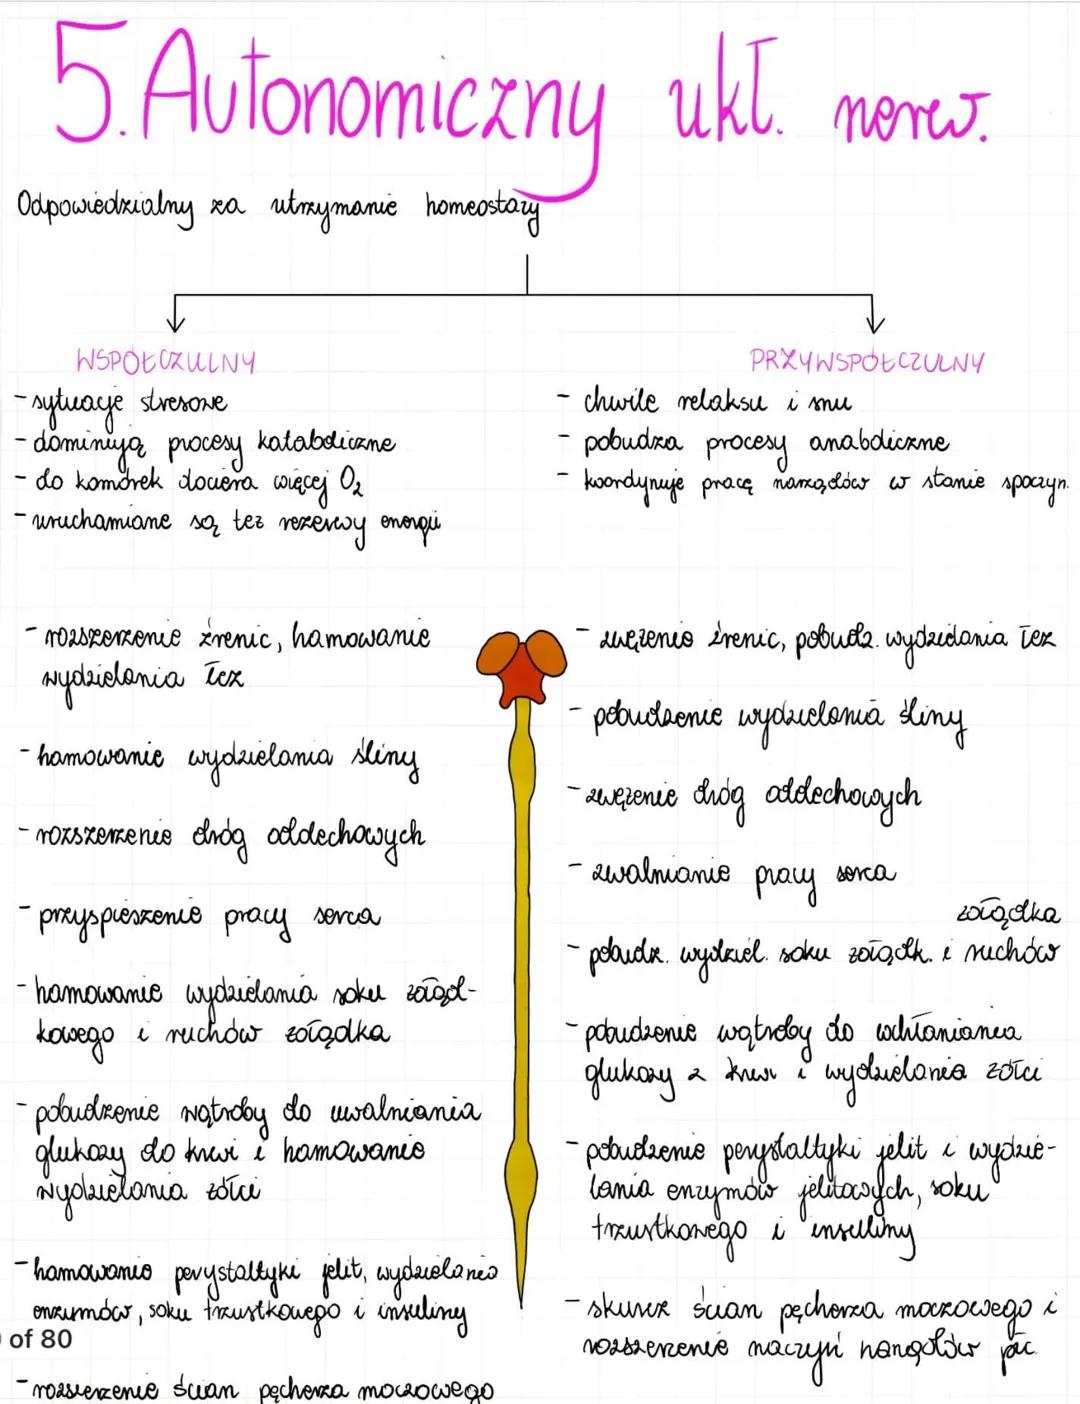 5. Autonomiczny ukł. nerw.
Odpowiedzialny za utrzymanie homeostazy
WSPÓŁCZULNY
- sytuacje stresowe
- dominują procesy kataboliczne
- do komórek dociera więcej O₂
- uruchamiane są też rezerwy energii
PRZYWSPÓŁCZULNY
- chwile relaksu i snu
- pobudza procesy anaboliczne
- koordynuje pracę narządów w stanie spoczyn.
- rozszerzenie źrenic, hamowanie
wydzielania łez
- hamowanie wydzielania śliny
- rozszerzenie dróg oddechowych
- przyspieszenie pracy serca
- hamowanie wydzielania soku żołąd-
kowego i ruchów żołądka
- pobudzenie wątroby do uwalniania
glukozy do krwi i hamowanie
wydzielania żółci
- hamowanie perystaltyki jelit, wydzielania
enzymów, soku trzustkowego i insuliny
- rozszerzenie ścian pęcherza moczowego
- zwężenie źrenic, pobudz. wydzielania łez
- pobudzenie wydzielania śliny
- zwężenie dróg oddechowych
- zwalnianie pracy serca
żołądka
- pobudz. wydziel. soku żołądk. i ruchów
- pobudzenie wątroby do wchłaniania
glukozy z krwi i wydzielania żółci
- pobudzenie perystaltyki jelit i wydzie-
lania enzymów jelitowych, soku
trzustkowego i insuliny
- skurcz ścian pęcherza moczowego i
rozszerzenie naczyń narządów płc.
of 80